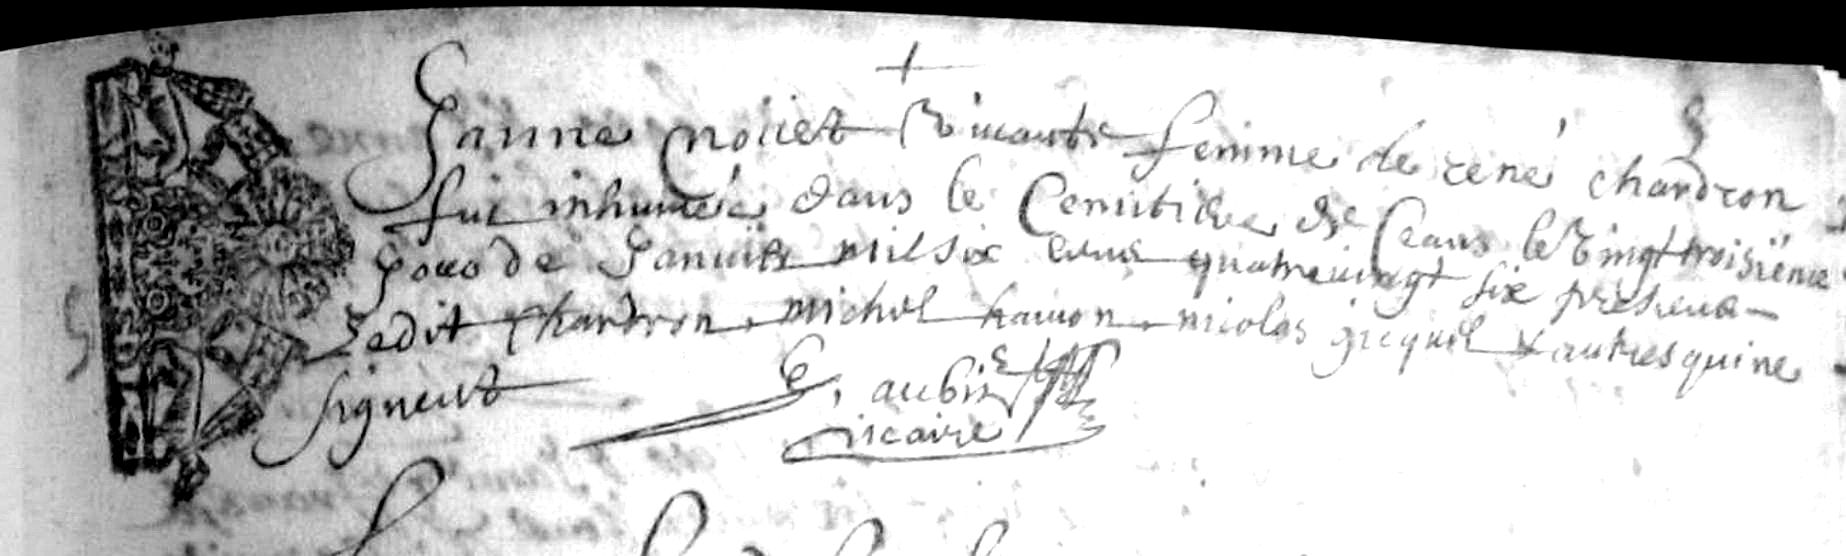 Janne noüet vivante femme de rené chardron
fut inhumée dans le Cemitiere de Ceans le vingt troisiéme
Jour de Janvier mil six cens quatre vingt six presens
Ledit chardron michel hamon nicolas jicquel & autres qui ne
signent
aubin
vicaire